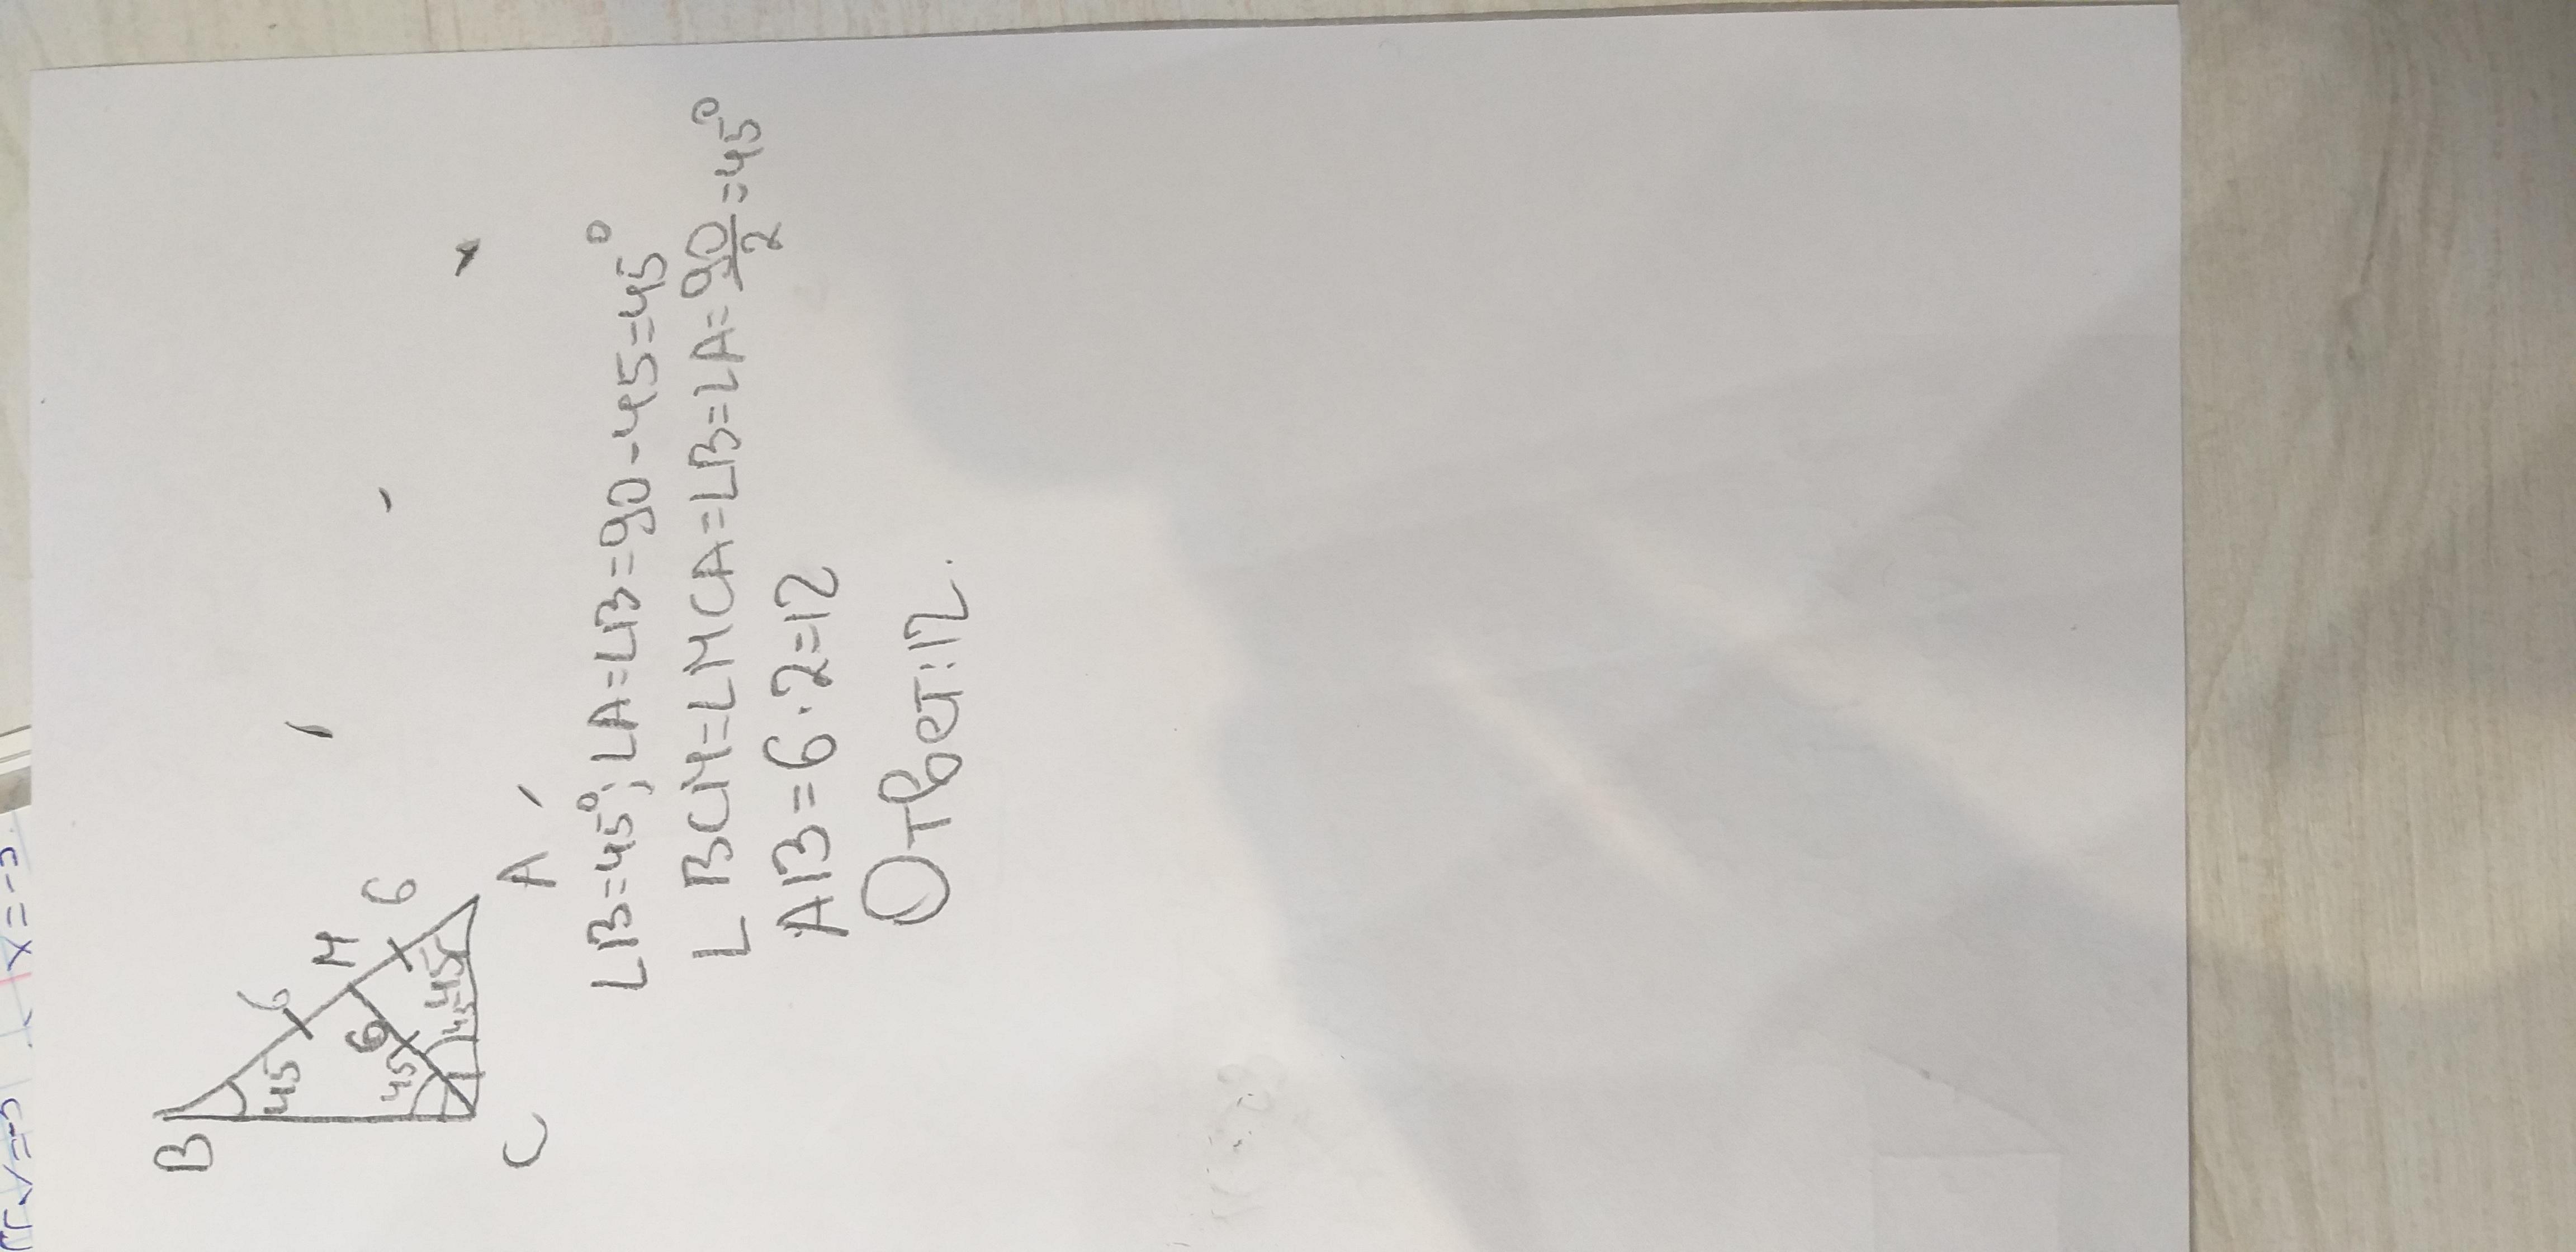 B
6
M
6
45
6
45
45
45
C
A
∠B=45°; ∠A=∠B=90-45=45°
∠BCM=∠MCA=∠B=∠A=90/2=45°
AB=6·2=12
Ответ:12.